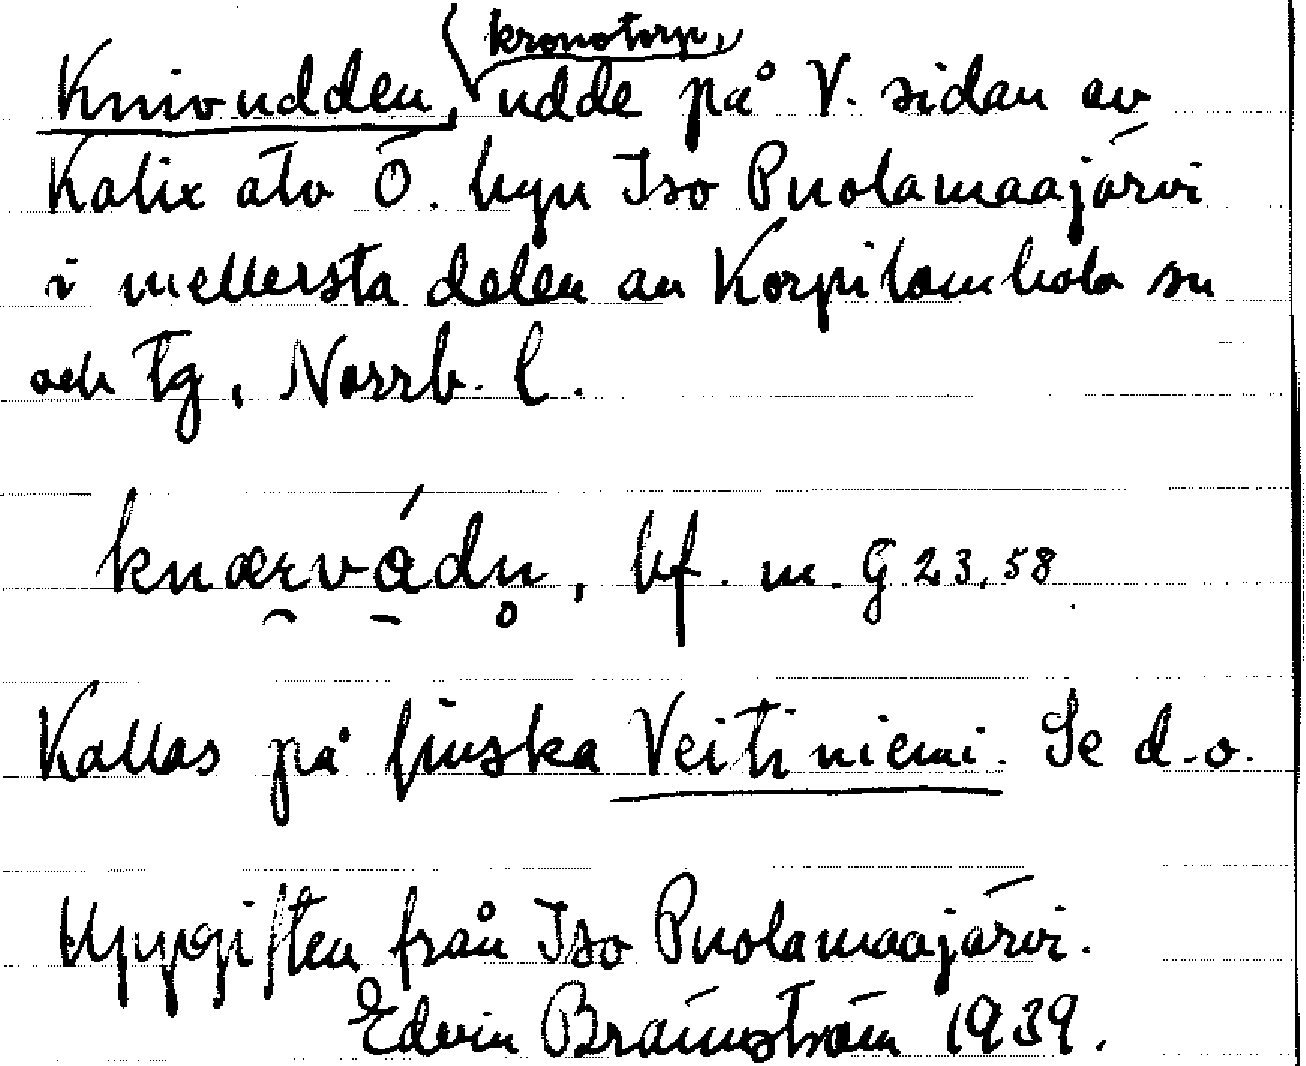 kronotorp,
Knivudden, udde på V. sidan av
Kalix älv Ö. byn Iso Puolamaajärvi
i mellersta delen av Korpilombolo sn
och tg, Norrb. l.
knærvádn̥, bf. m. G 23, 58
Kallas på finska Veitiniemi. Se d.o.
Uppgiften från Iso Puolamaajärvi.
Edvin Brännström 1939.